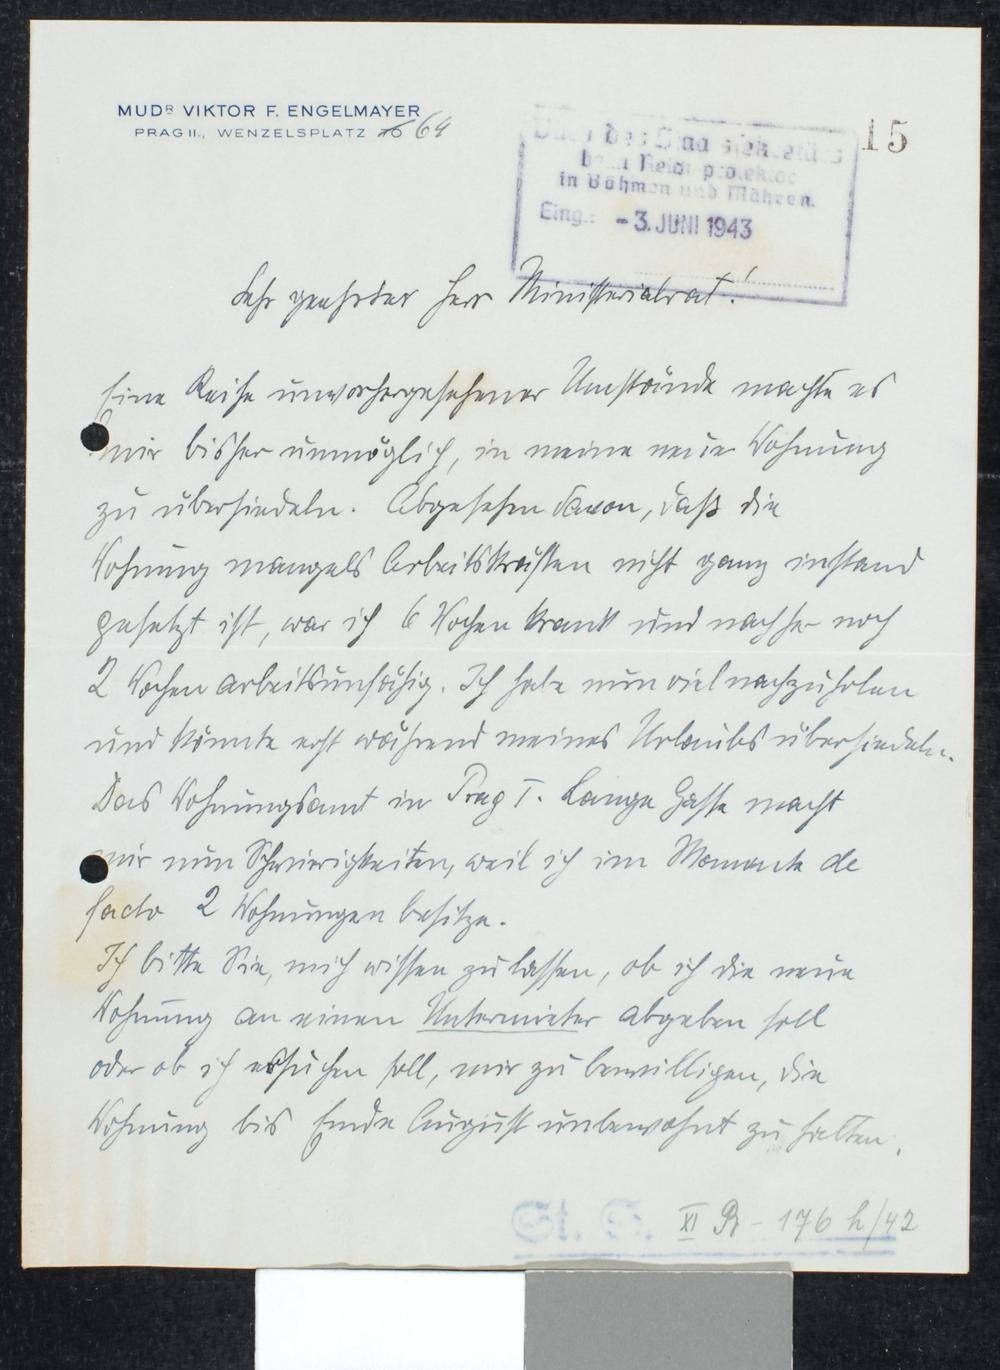 MUDR VIKTOR F. ENGELMAYER
PRAG II., WENZELSPLATZ 64
15
Büro des Staatssekretärs
beim Reichsprotektor
in Böhmen und Mähren.
Eing.: - 3. JUNI 1943
Sehr geehrter Herr Ministerialrat!
Eine Reihe unvorhergesehener Umstände machte es
mir bisher unmöglich, in meine neue Wohnung
zu übersiedeln. Abgesehen davon, daß die
Wohnung mangels Arbeitskräften nicht ganz instand
gesetzt ist, war ich 6 Wochen krank und nachher noch
2 Wochen arbeitsunfähig. Ich habe nun viel nachzuholen
und könnte erst während meines Urlaubs übersiedeln.
Das Wohnungsamt in Prag I. Lange Gasse macht
mir nun Schwierigkeiten, weil ich im Momente de
facto 2 Wohnungen besitze.
Ich bitte Sie, mich wissen zu lassen, ob ich die neue
Wohnung an einen Untermieter abgeben soll
oder ob ich ersuchen soll, mir zu bewilligen, die
Wohnung bis Ende August unbewohnt zu halten.
St. S. XI 176 h/42